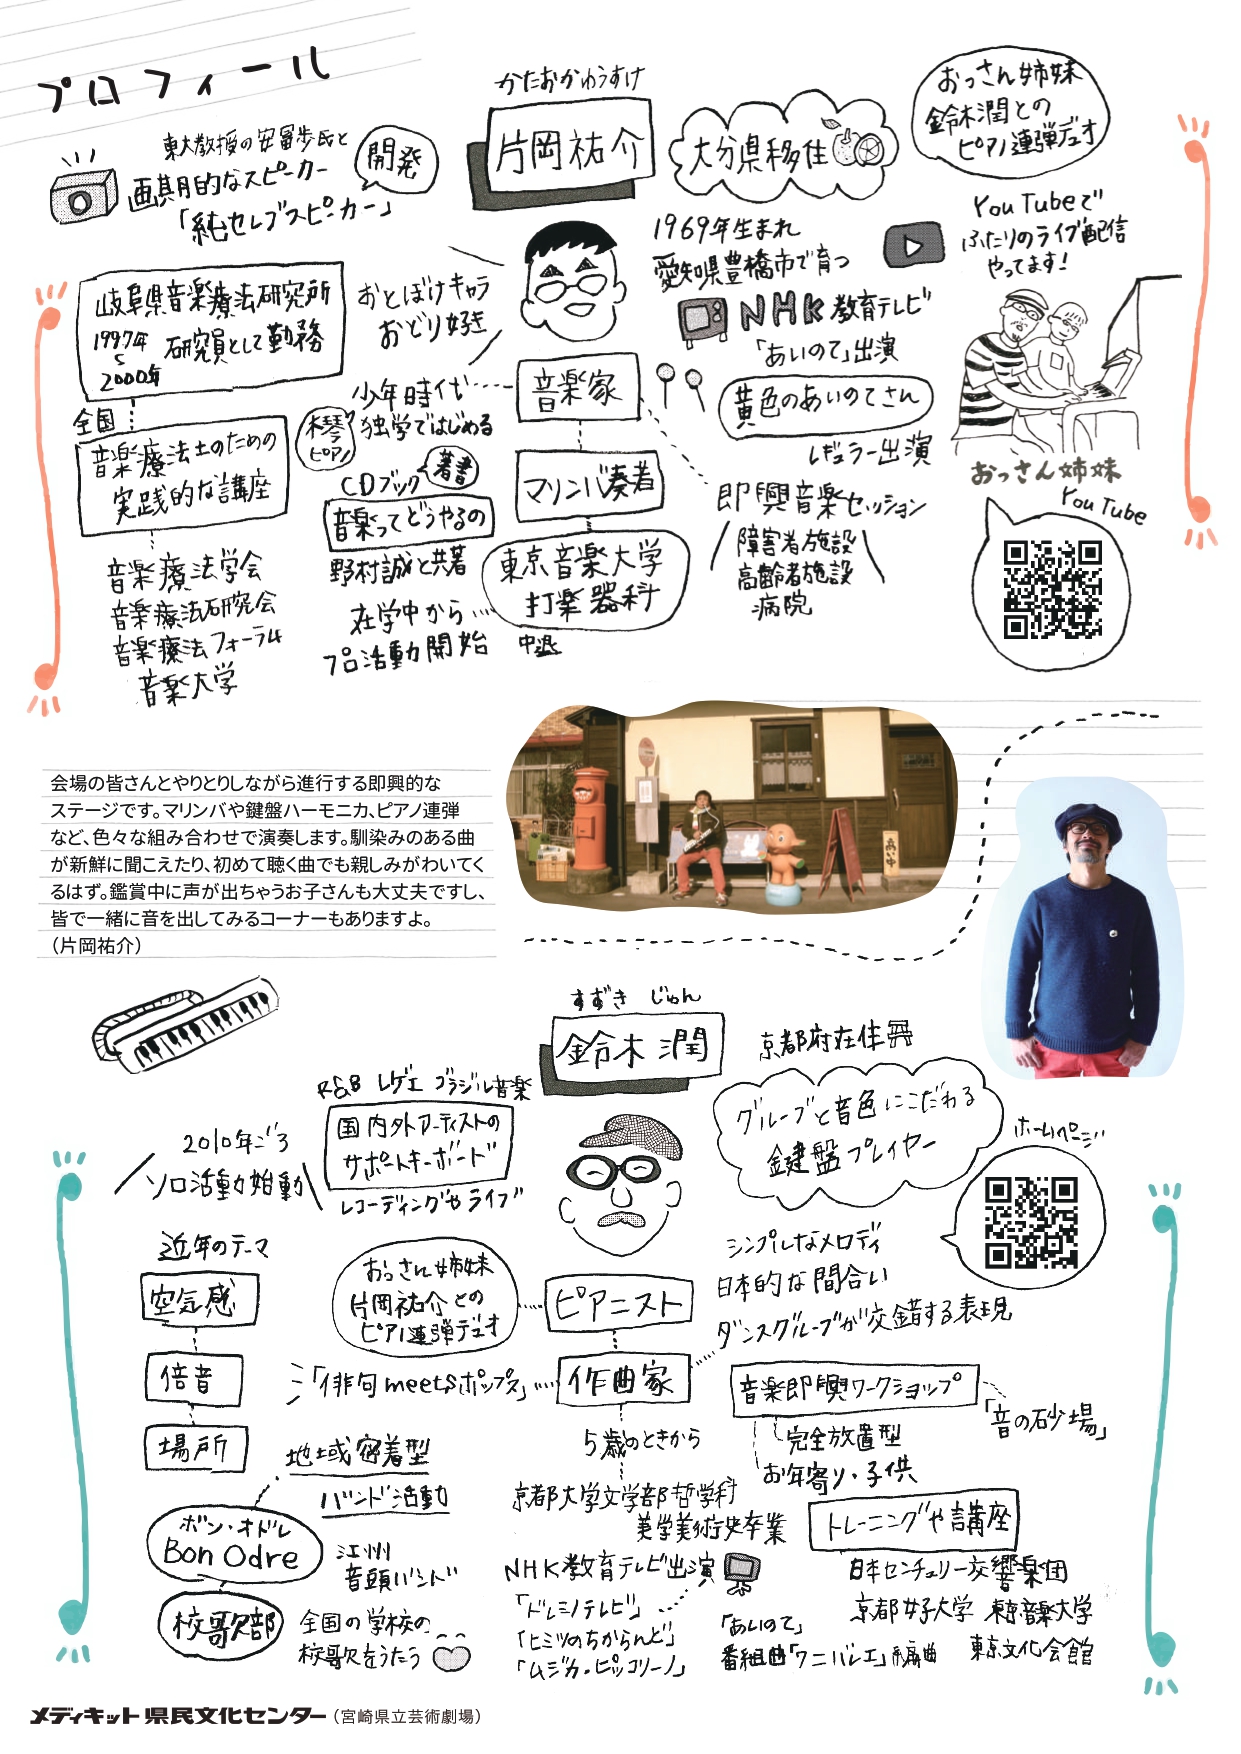 プロフィール
東大教授の安冨歩氏と
画期的なスピーカー
「純セレブスピーカー」
開発
かたおかゆうすけ
片岡祐介
大分県移住
おっさん姉妹
鈴木潤との
ピアノ連弾デュオ
YouTubeで
ふたりのライブ配信
やってます!
1969年生まれ
愛知県豊橋市で育つ
NHK教育テレビ
「あいのて」出演
黄色のあいのてさん
レギュラー出演
おとぼけキャラ
おどり好き
岐阜県音楽療法研究所
1997年
2000年
研究員として勤務
全国
音楽療法士のための
実践的な講座
音楽療法学会
音楽療法研究会
音楽療法フォーラム
音楽大学
音楽家
少年時代
独学ではじめる
木琴
ピアノ
CDブック
著書
音楽ってどうやるの
野村誠と共著
マリンバ奏者
東京音楽大学
打楽器科
中退
在学中から
プロ活動開始
即興音楽セッション
障害者施設
高齢者施設
病院
おっさん姉妹
YouTube
会場の皆さんとやりとりしながら進行する即興的な
ステージです。マリンバや鍵盤ハーモニカ、ピアノ連弾
など、色々な組み合わせで演奏します。馴染みのある曲
が新鮮に聞こえたり、初めて聴く曲でも親しみがわいてく
るはず。鑑賞中に声が出ちゃうお子さんも大丈夫ですし、
皆で一緒に音を出してみるコーナーもありますよ。
(片岡祐介)
すずき じゅん
鈴木潤
京都府在住
グルーブと音色にこだわる
鍵盤プレイヤー
ホームページ
R&B レゲエ ブラジル音楽
国内外アーティストの
サポートキーボード
レコーディングやライブ
2010年ごろ
ソロ活動始動
近年のテーマ
空気感
倍音
場所
おっさん姉妹
片岡祐介との
ピアノ連弾デュオ
ピアニスト
シンプルなメロディ
日本的な間合い
ダンスグルーブが交錯する表現
「俳句meetsポップス」
作曲家
5歳のときから
京都大学文学部哲学科
美学美術史卒業
音楽即興ワークショップ
「音の砂場」
完全放置型
お年寄り・子供
地域密着型
バンド活動
ボン・オドレ
Bon Odre
江州
音頭バンド
校歌部
全国の学校の
校歌をうたう
NHK教育テレビ出演
「ドレミノテレビ」
「ヒミツのちからんど」
「ムジカ・ピッコリーノ」
「あいのて」
番組曲「ワニバレエ」編曲
トレーニングや講座
日本センチュリー交響楽団
京都女子大学 東京音楽大学
東京文化会館
メディキット県民文化センター(宮崎県立芸術劇場)